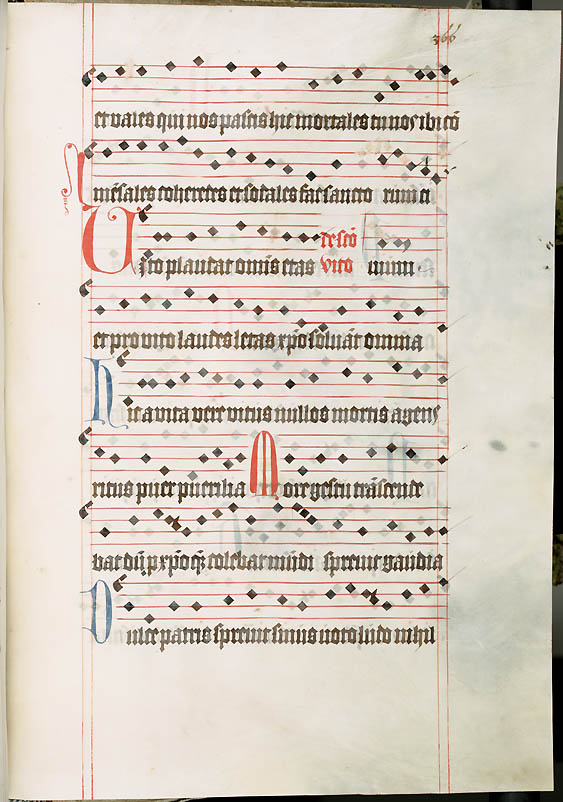 366
et vales qui nos pascis hic mortales tu nos ibi cō
mēsales coheredes et sodales fac sanctorū ciuiū
de scō
Uisto plaudat omnis etas vito
et pro vito laudes letas xp̄o soluāt omnia
Hic a vita vere vitus nullos mortis agens
ritus puer puerilia More gestiū trāscende
bat dū p xp̄o q̄ colebat mūdi spreuit gaudia
Dulce patris spreuit sinus uoto ludo nihil